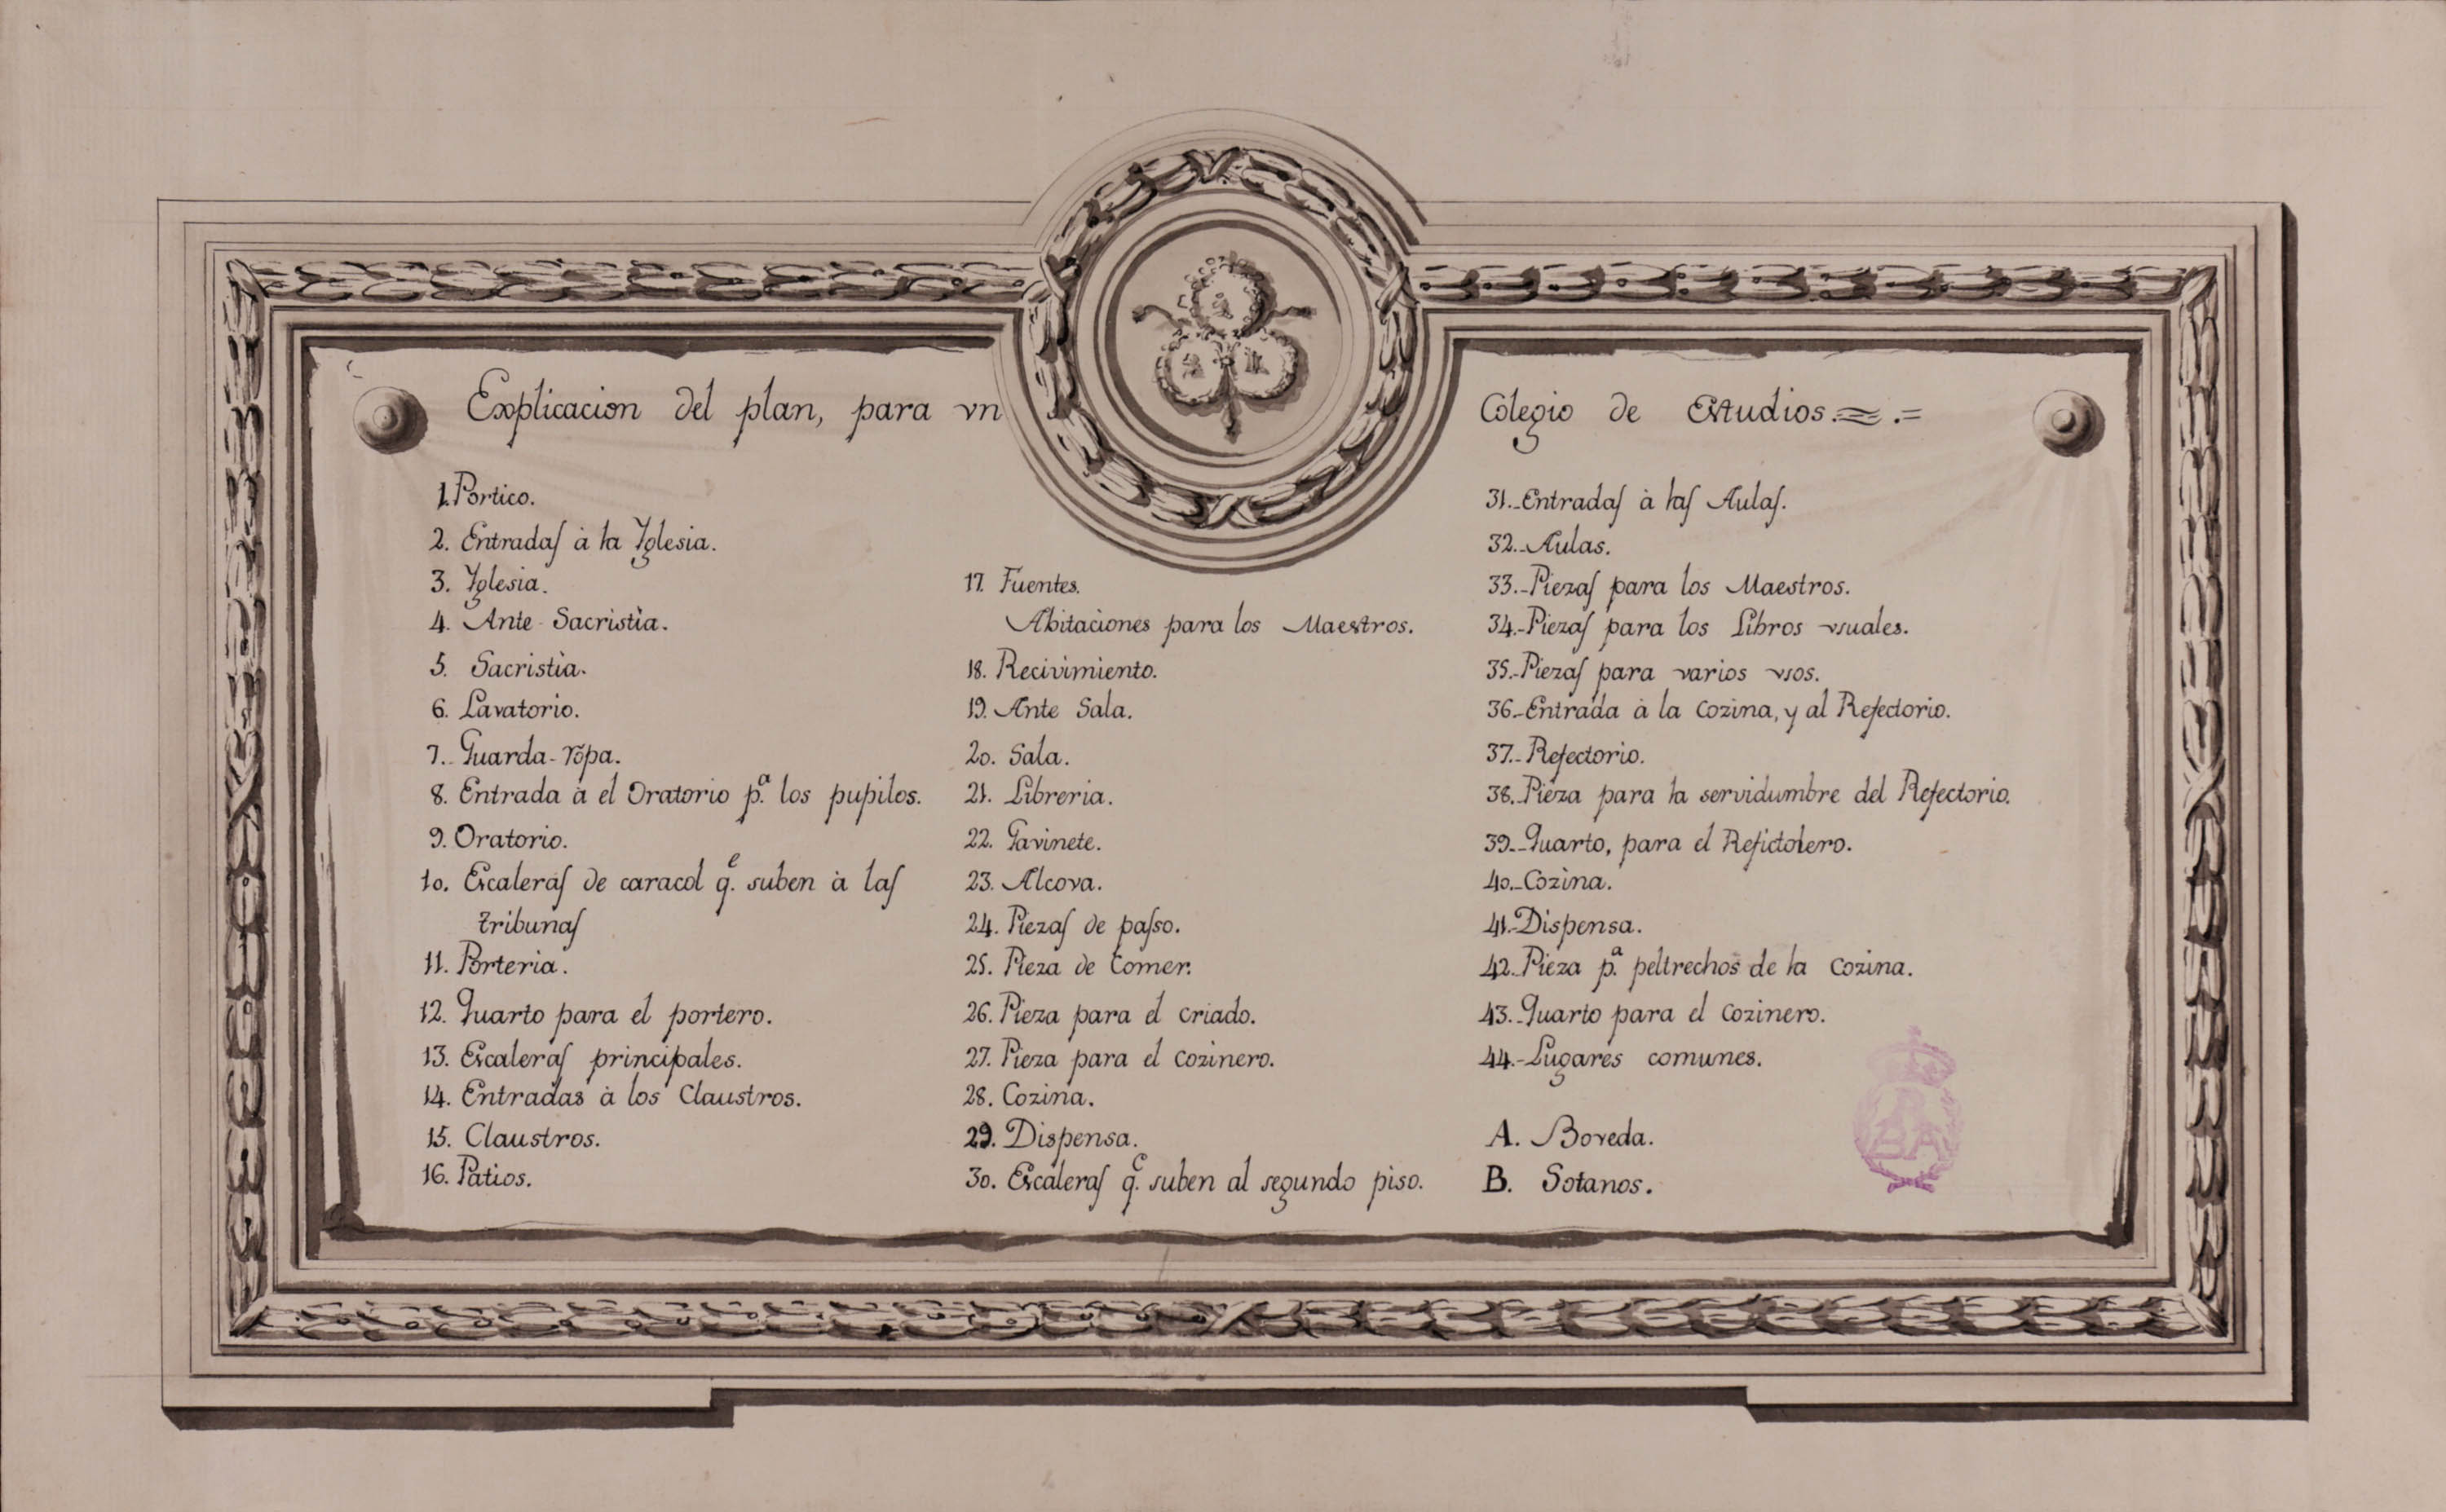 Explicacion del plan, para vn Colegio de Estudios.
1. Portico.
2. Entradas à la Yglesia.
3. Yglesia.
4. Ante Sacristìa.
5. Sacristìa.
6. Lavatorio.
7. Guarda-ropa.
8. Entrada à el Oratorio p.ª los pupilos.
9. Oratorio.
10. Escaleras de caracol q.e suben à las
tribunas
11. Porteria.
12. Quarto para el portero.
13. Escaleras principales.
14. Entradas à los Claustros.
15. Claustros.
16. Patios.
17. Fuentes.
Abitaciones para los Maestros.
18. Recivimiento.
19. Ante Sala.
20. Sala.
21. Libreria.
22. Gavinete.
23. Alcova.
24. Piezas de passo.
25. Pieza de Comer.
26. Pieza para el criado.
27. Pieza para el cozinero.
28. Cozina.
29. Dispensa.
30. Escaleras q.e suben al segundo piso.
31. Entradas à las Aulas.
32. Aulas.
33. Piezas para los Maestros.
34. Piezas para los Libros vsuales.
35. Piezas para varios vsos.
36. Entrada à la Cozina, y al Refectorio.
37. Refectorio.
38. Pieza para la servidumbre del Refectorio.
39. Quarto, para el Refictolero.
40. Cozina.
41. Dispensa.
42. Pieza p.ª peltrechos de la Cozina.
43. Quarto para el Cozinero.
44. Lugares comunes.
A. Boveda.
B. Sotanos.